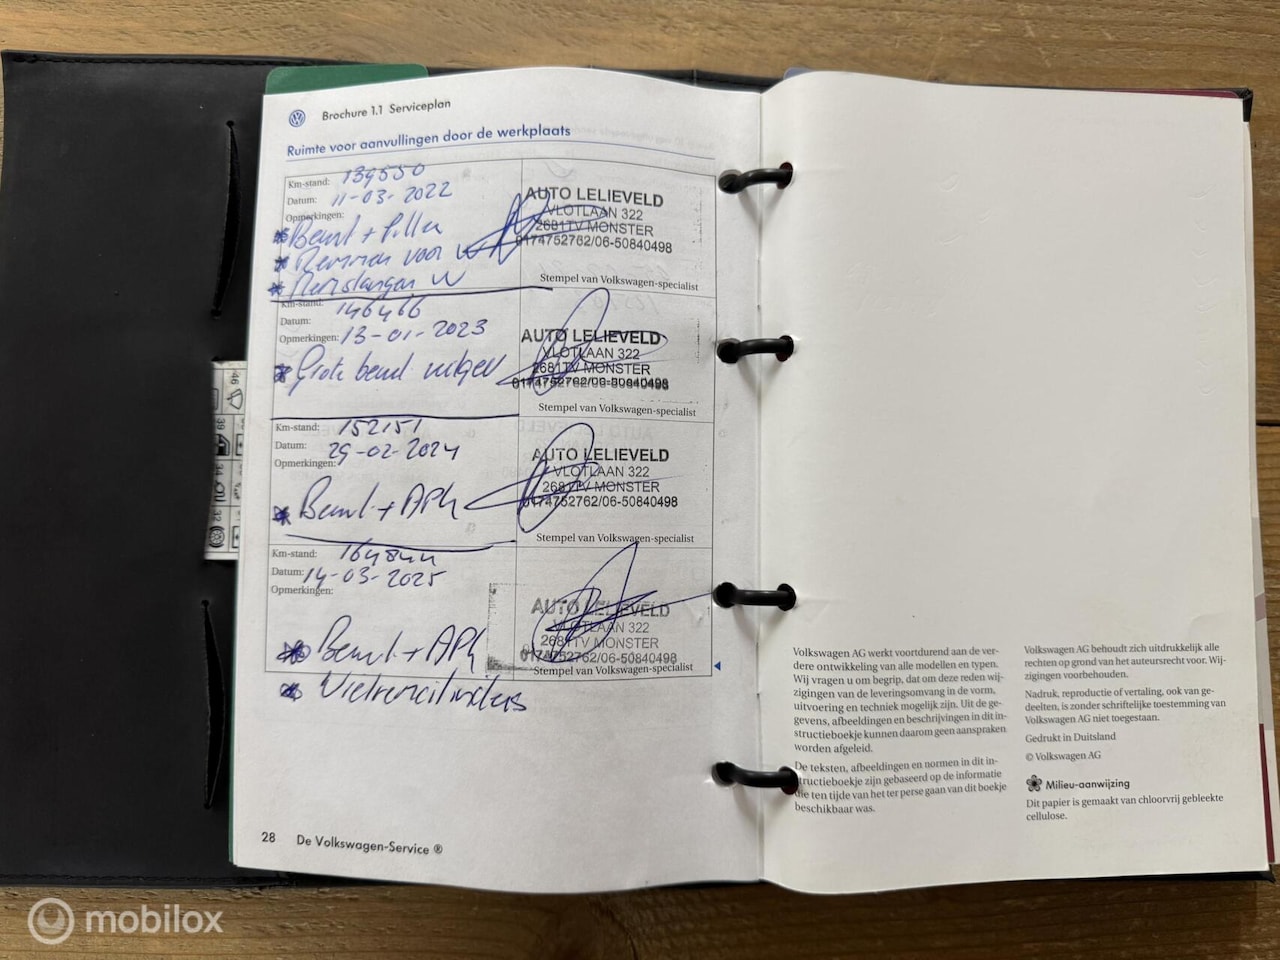 Brochure 1.1 Serviceplan
Ruimte voor aanvullingen door de werkplaats
Km-stand: 139550
Datum: 11-03-2022
Opmerkingen:
* Beurt + filter
* Remmen voor
* Remslangen
AUTO LELIEVELD
VLOTLAAN 322
2681TV MONSTER
0174752762/06-50840498
Stempel van Volkswagen-specialist
Km-stand: 146466
Datum:
Opmerkingen: 13-01-2023
* Grote beurt
AUTO LELIEVELD
VLOTLAAN 322
2681TV MONSTER
0174752762/06-50840498
Stempel van Volkswagen-specialist
Km-stand: 152151
Datum: 29-02-2024
Opmerkingen:
* Beurt + APK
AUTO LELIEVELD
VLOTLAAN 322
2681TV MONSTER
0174752762/06-50840498
Stempel van Volkswagen-specialist
Km-stand: 164844
Datum: 14-03-2025
Opmerkingen:
* Beurt + APK
* Wielremcilinders
AUTO LELIEVELD
VLOTLAAN 322
2681TV MONSTER
0174752762/06-50840498
Stempel van Volkswagen-specialist
28 De Volkswagen-Service ®
46
39
34
32
Volkswagen AG werkt voortdurend aan de ver-
dere ontwikkeling van alle modellen en typen.
Wij vragen u om begrip, dat om deze reden wij-
zigingen van de leveringsomvang in de vorm,
uitvoering en techniek mogelijk zijn. Uit de ge-
gevens, afbeeldingen en beschrijvingen in dit in-
structieboekje kunnen daarom geen aanspraken
worden afgeleid.
De teksten, afbeeldingen en normen in dit in-
structieboekje zijn gebaseerd op de informatie
die ten tijde van het ter perse gaan van dit boekje
beschikbaar was.
Volkswagen AG behoudt zich uitdrukkelijk alle
rechten op grond van het auteursrecht voor. Wij-
zigingen voorbehouden.
Nadruk, reproductie of vertaling, ook van ge-
deelten, is zonder schriftelijke toestemming van
Volkswagen AG niet toegestaan.
Gedrukt in Duitsland
© Volkswagen AG
Milieu-aanwijzing
Dit papier is gemaakt van chloorvrij gebleekte
cellulose.
mobilox